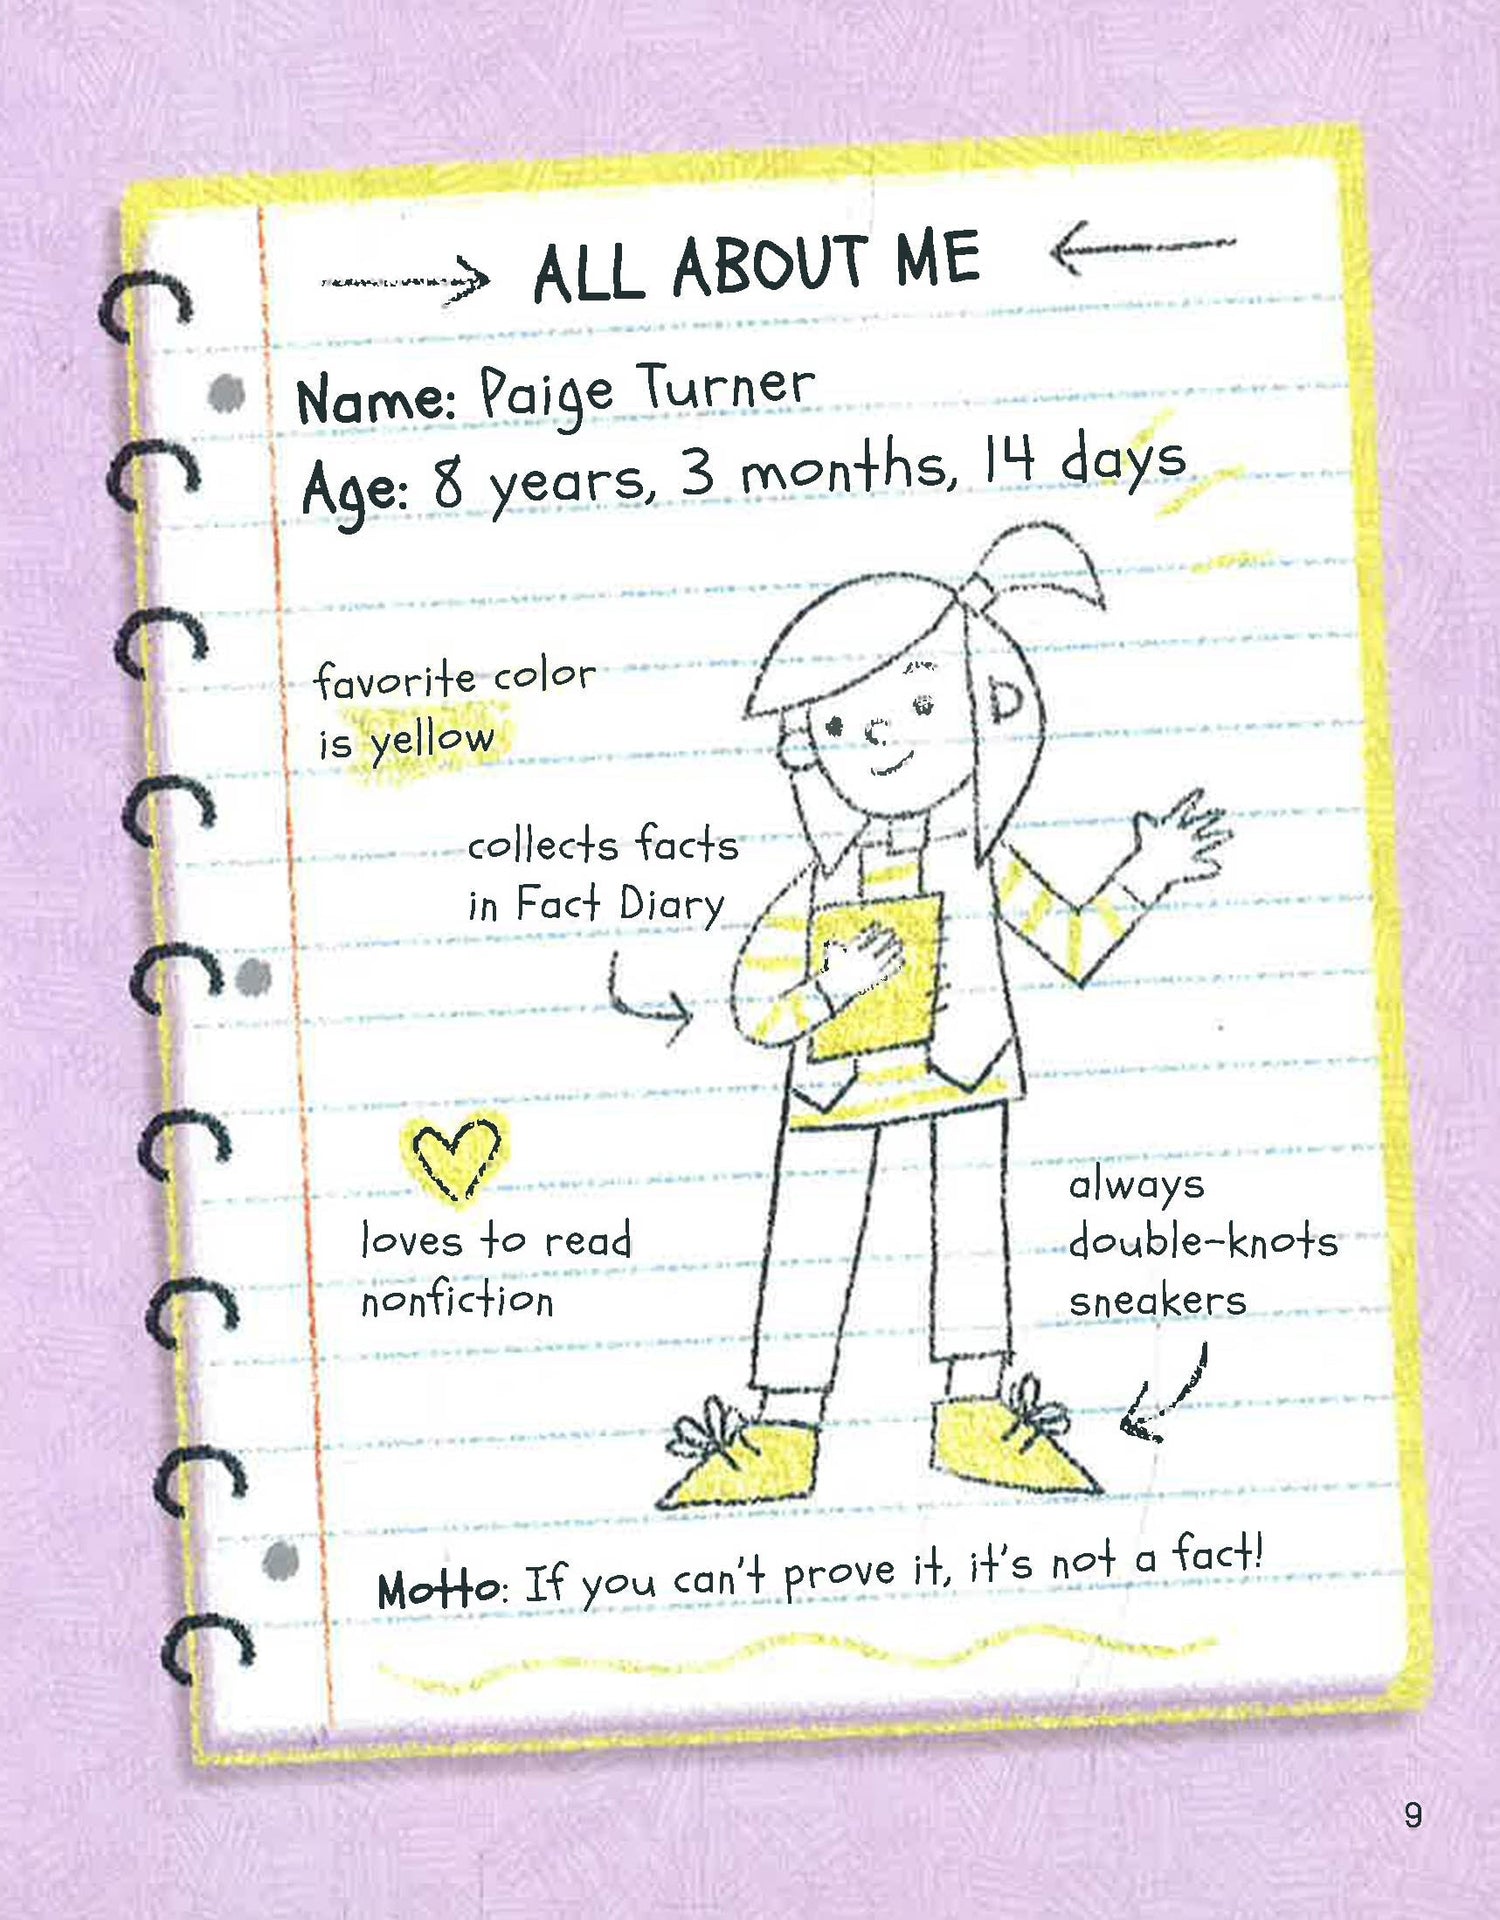 ALL ABOUT ME
Name: Paige Turner
Age: 8 years, 3 months, 14 days
favorite color
is yellow
collects facts
in Fact Diary
loves to read
nonfiction
always
double-knots
sneakers
Motto: If you can't prove it, it's not a fact!
9